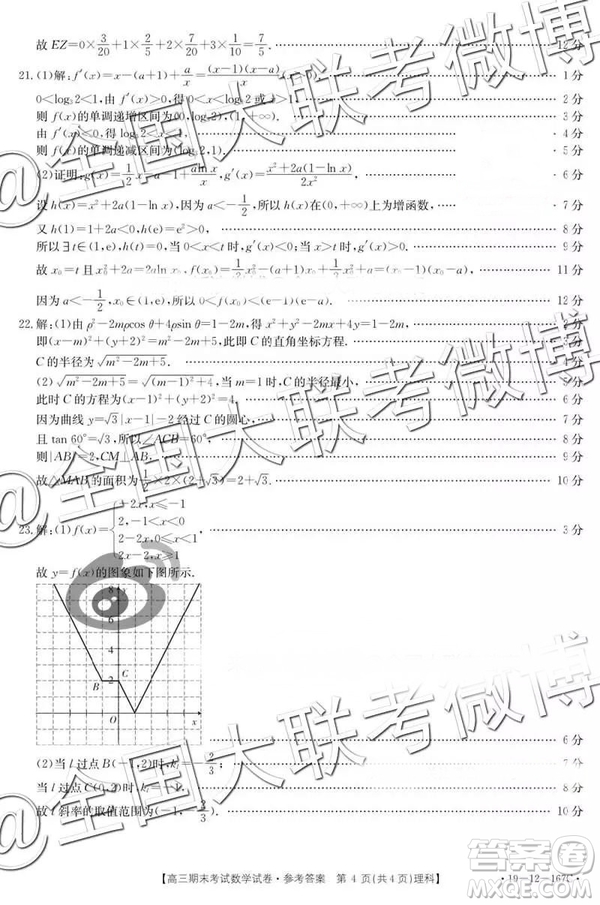 故 EZ=0×3/20+1×2/5+2×7/20+3×1/10=7/5. 12分
21.(1)解:f′(x)=x-(a+1)+a/x=(x-1)(x-a)/x. 1分
0<log₅2<1,由 f′(x)>0,得0<x<log₅2或x>1, 2分
则 f(x)的单调递增区间为(0,log₅2),(1,+∞). 3分
由 f′(x)<0,得log₅2<x<1, 4分
则 f(x)的单调递减区间为(log₅2,1). 5分
(2)证明:g(x)=1/2 x-a+aln x/x,g′(x)=x²+2a(1-ln x)/2x². 6分
设 h(x)=x²+2a(1-ln x),因为a<-1/2,所以h(x)在(0,+∞)上为增函数, 7分
又 h(1)=1+2a<0,h(e)=e²>0, 8分
所以∃t∈(1,e),h(x₀)=0,当0<x<t时,g′(x)<0;当x>t时,g′(x)>0. 9分
故 x₀=t且x₀²+2a=2aln x₀,f(x₀)=1/2x₀²-(a+1)x₀+ x₀(x₀-a). 11分
因为 a<-1/2,x₀∈(1,e),所以0<f(x₀)<(e-1)(e-a). 12分
22.解:(1)由ρ²-2mρcos θ+4ρsin θ=1-2m,得x²+y²-2mx+4y=1-2m,
即(x-m)²+(y+2)²=m²-2m+5,此即C的直角坐标方程.
C的半径为√m²-2m+5. 4分
(2)√m²-2m+5=√(m-1)²+4,当m=1时,C的半径最小,
此时C的方程为(x-1)²+(y+2)²=4. 6分
因为曲线y=√3|x-1|-2经过C的圆心,
且tan 60°=√3,所以∠ACB=60°, 8分
则|AB|=2,CM⊥AB, 9分
故△MAB的面积为1/2×2×(2+√3)=2+√3. 10分
23.解:(1)f(x)={-2x,x≤-1
2,-1<x<0
2-2x,0≤x<1
2x-2,x≥1 3分
故 y=f(x)的图象如下图所示.
8
6
4
B 2 C
O x
6分
(2)当l过点B(-1,2)时,k=-2/3;
当l过点C(0,2)时,k=-1. 8分
故l斜率的取值范围为(-1,-2/3). 10分
【高三期末考试数学试卷·参考答案 第4页(共4页)理科】
·19-12-167C·
@全国大联考微博
@全国大联考微博
@全国大联考微博
答案圈